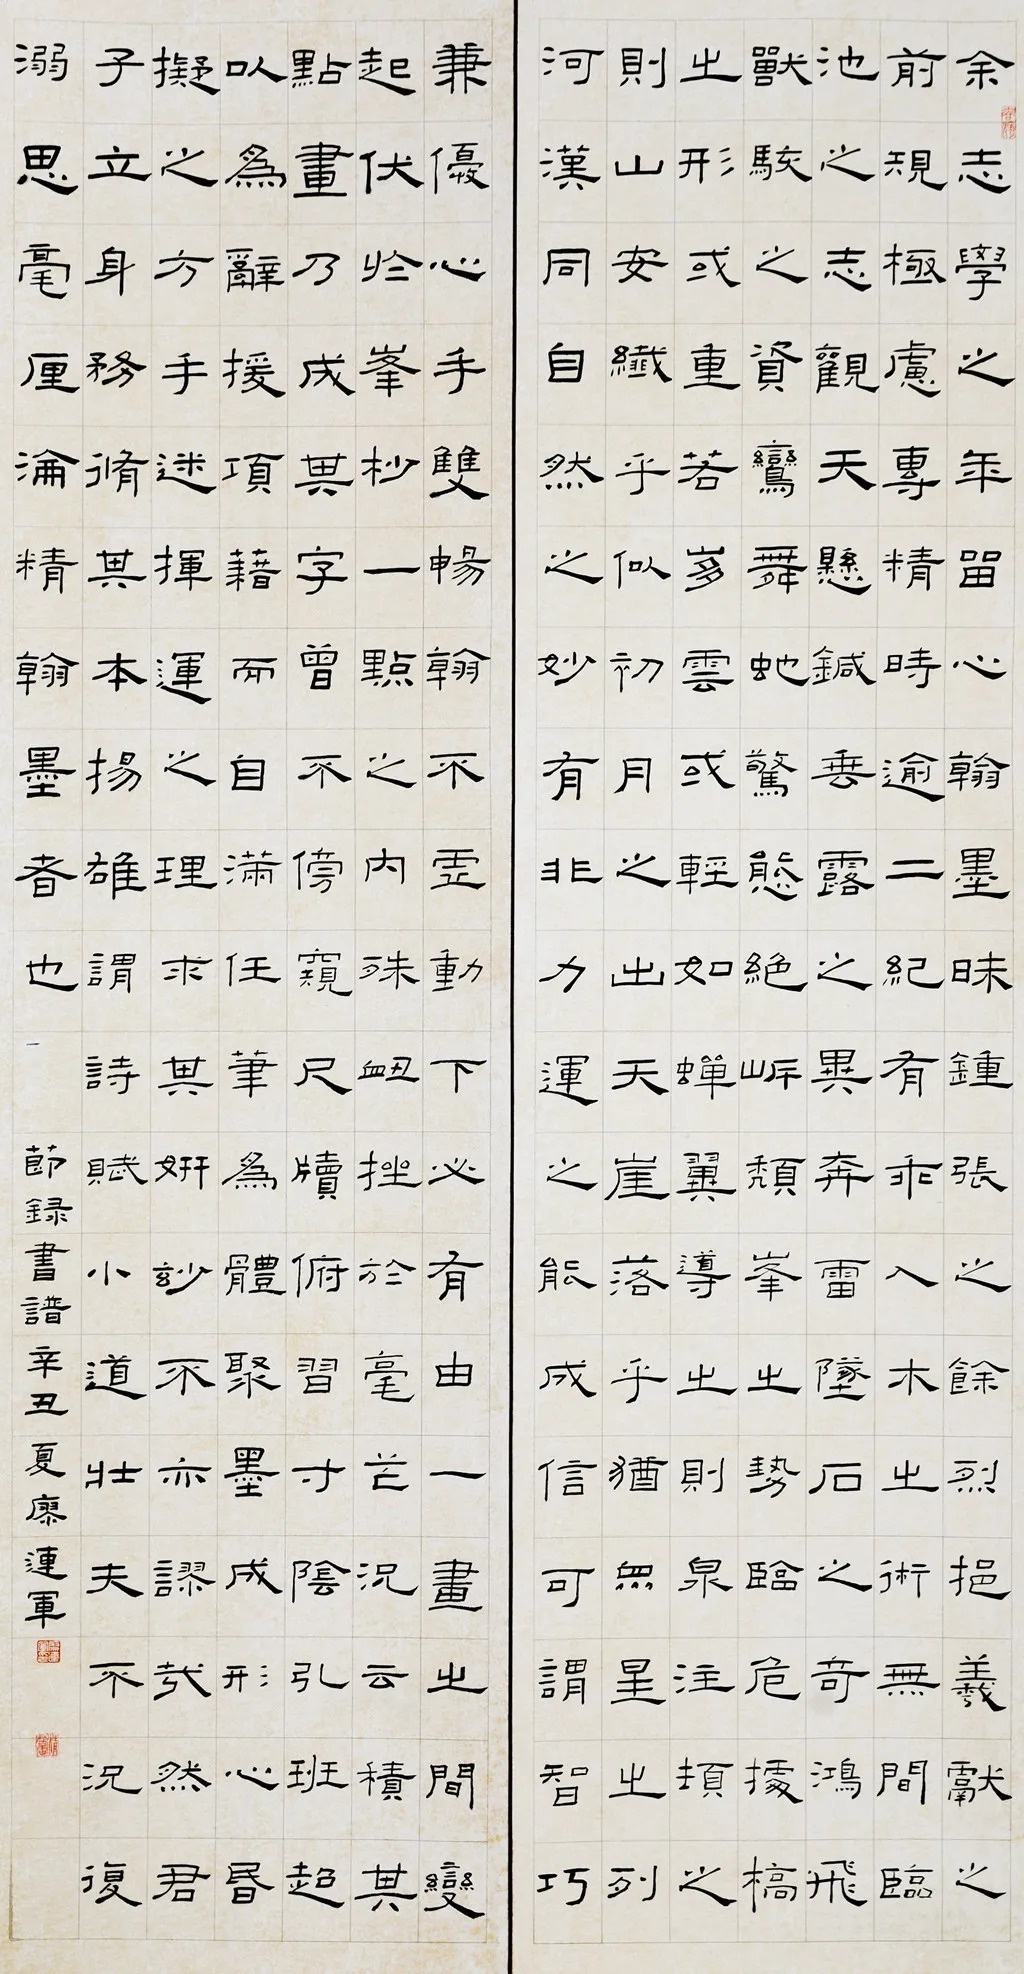 余志學之年留心翰墨昧鍾張之餘烈挹羲獻之
前規極慮專精時逾二紀有乖入木之術無間臨
池之志觀天懸鍼垂露之異奔雷墜石之奇鴻飛
獸駭之資鸞舞蛇驚態絕岸頹峯之勢臨危據槁
之形或重若崩雲或輕如蟬翼導之則泉注頓之
則山安纖乎似初月之出天崖落乎猶眾星之列
河漢同自然之妙有非力運之能成信可謂智巧
兼優心手雙暢翰不虛動下必有由一畫之間變
起伏於峯杪一點之內殊衄挫於毫芒況云積其
點畫乃成其字曾不傍窺尺牘俯習寸陰引班超
以為辭援項藉而自滿任筆為體聚墨成形心昏
擬之方手迷揮運之理求其妍妙不亦謬哉然君
子立身務脩其本揚雄謂詩賦小道壯夫不況復
溺思毫厘淪精翰墨者也
節錄書譜辛丑夏廖連軍